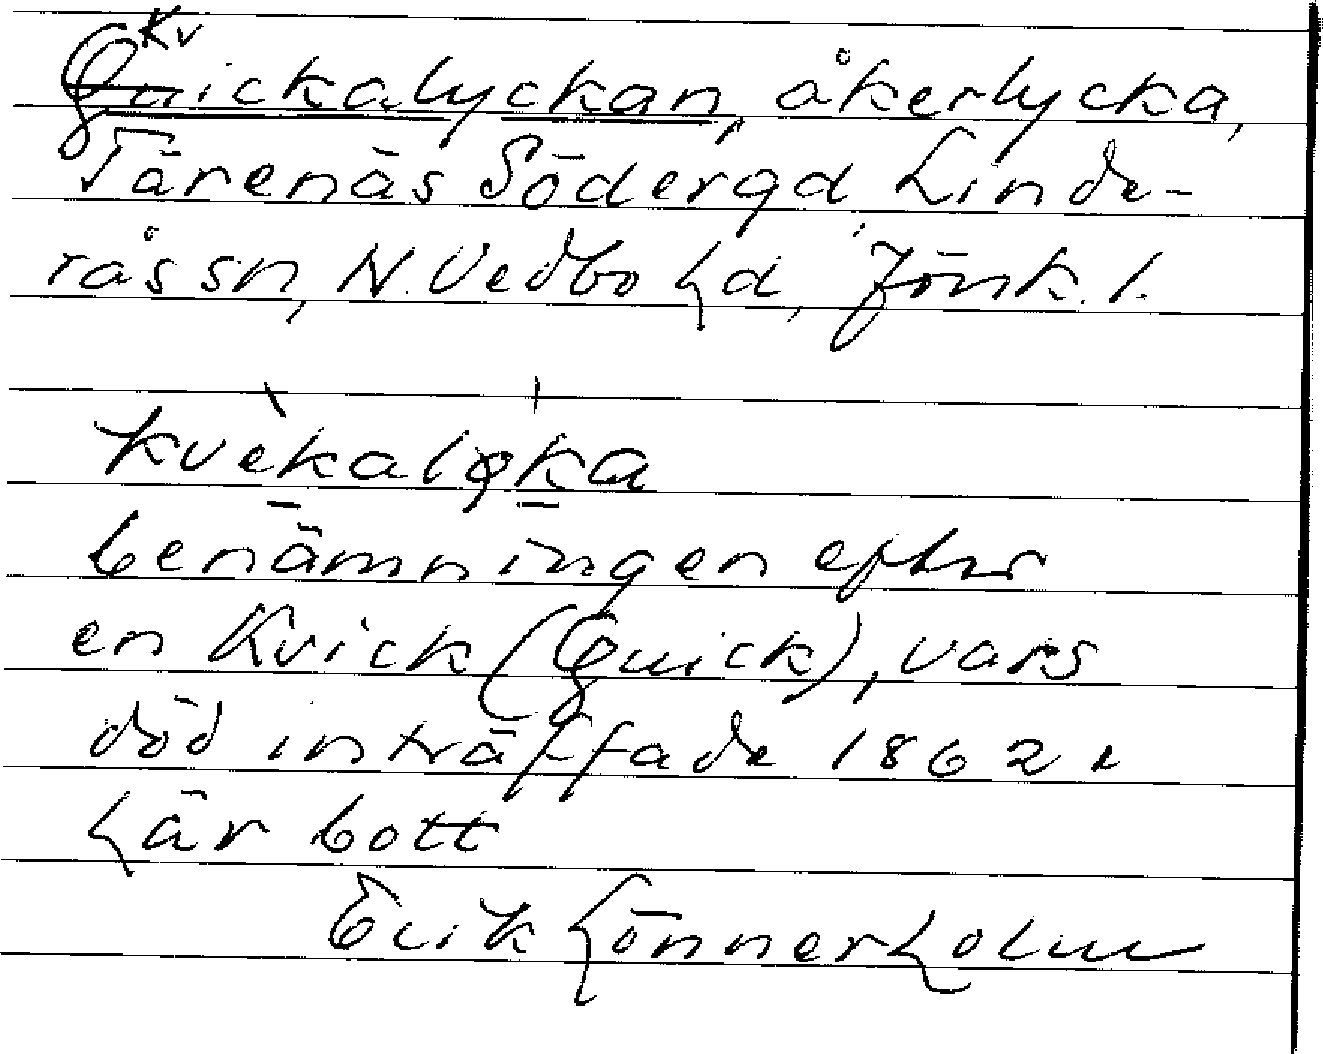 Kv
Quickalyckan, åkerlycka,
Tärenäs Södergd Linde-
rås sn, N. Vedbo hd, Jönk. l.
kvèkaløka
benämningen efter
en Kvick (Quick), vars
död inträffade 1862 i
här bott
Erik Lönnerholm